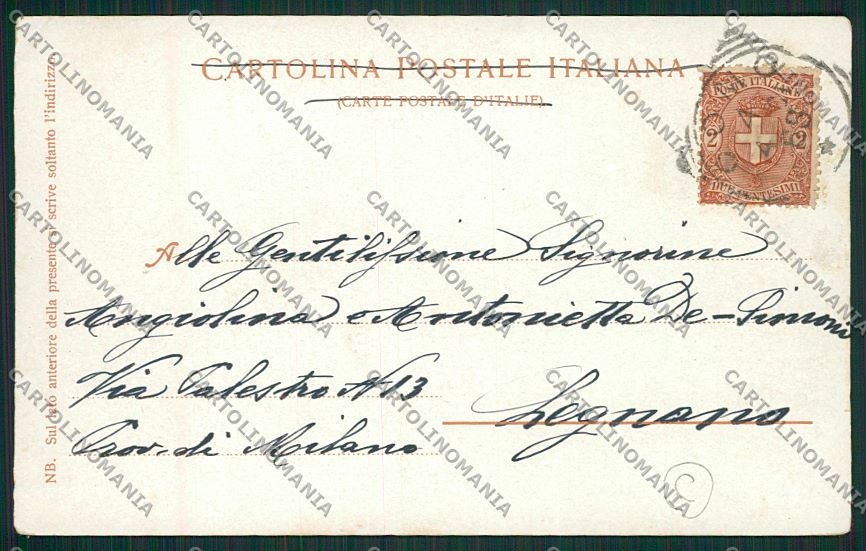 CARTOLINA POSTALE ITALIANA
(CARTE POSTALE D'ITALIE)
POSTE ITALIANE
2 2
DUE CENTESIMI
Alle Gentilissime Signorine
Angiolina e Antonietta De-Simoni
Via Palestro N 13
Legnano
Prov. di Milano
NB. Sul lato anteriore della presente si scrive soltanto l'indirizzo.
C
CARTOLINOMANIA